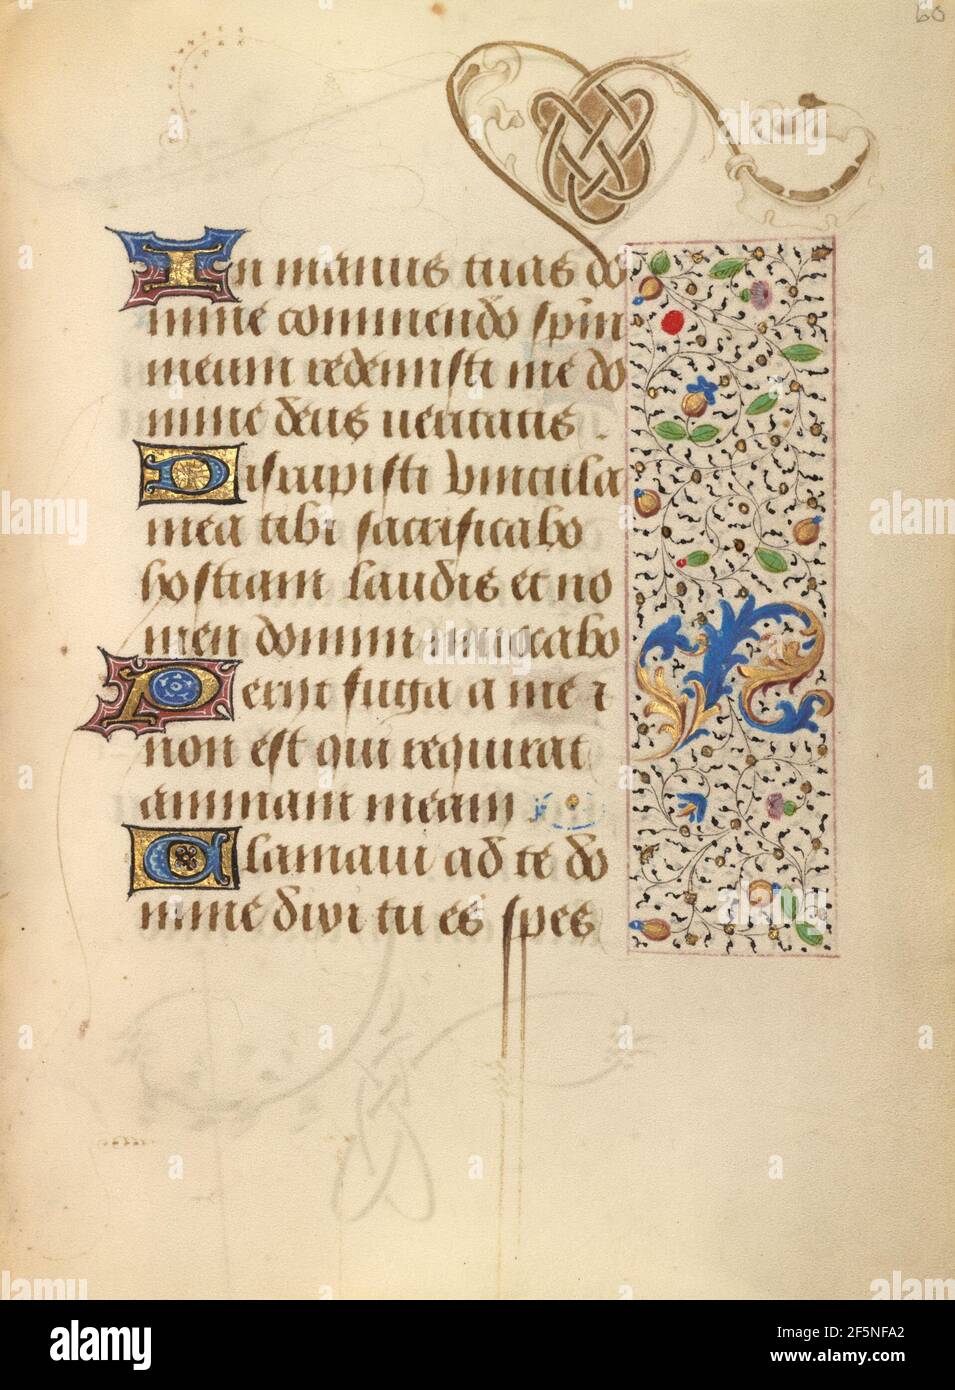 60
In manus tuas do
mine commendo spm
meum redemisti me do
mine deus ueritatis .
Disrupisti vincula
mea tibi sacrificabo
hostiam laudis et no
men domini inuocabo
Periit fuga a me ⁊
non est qui requirat
animam meam
Clamaui ad te do
mine dixi tu es spes
alamy
Image ID: 2F5NFA2
www.alamy.com